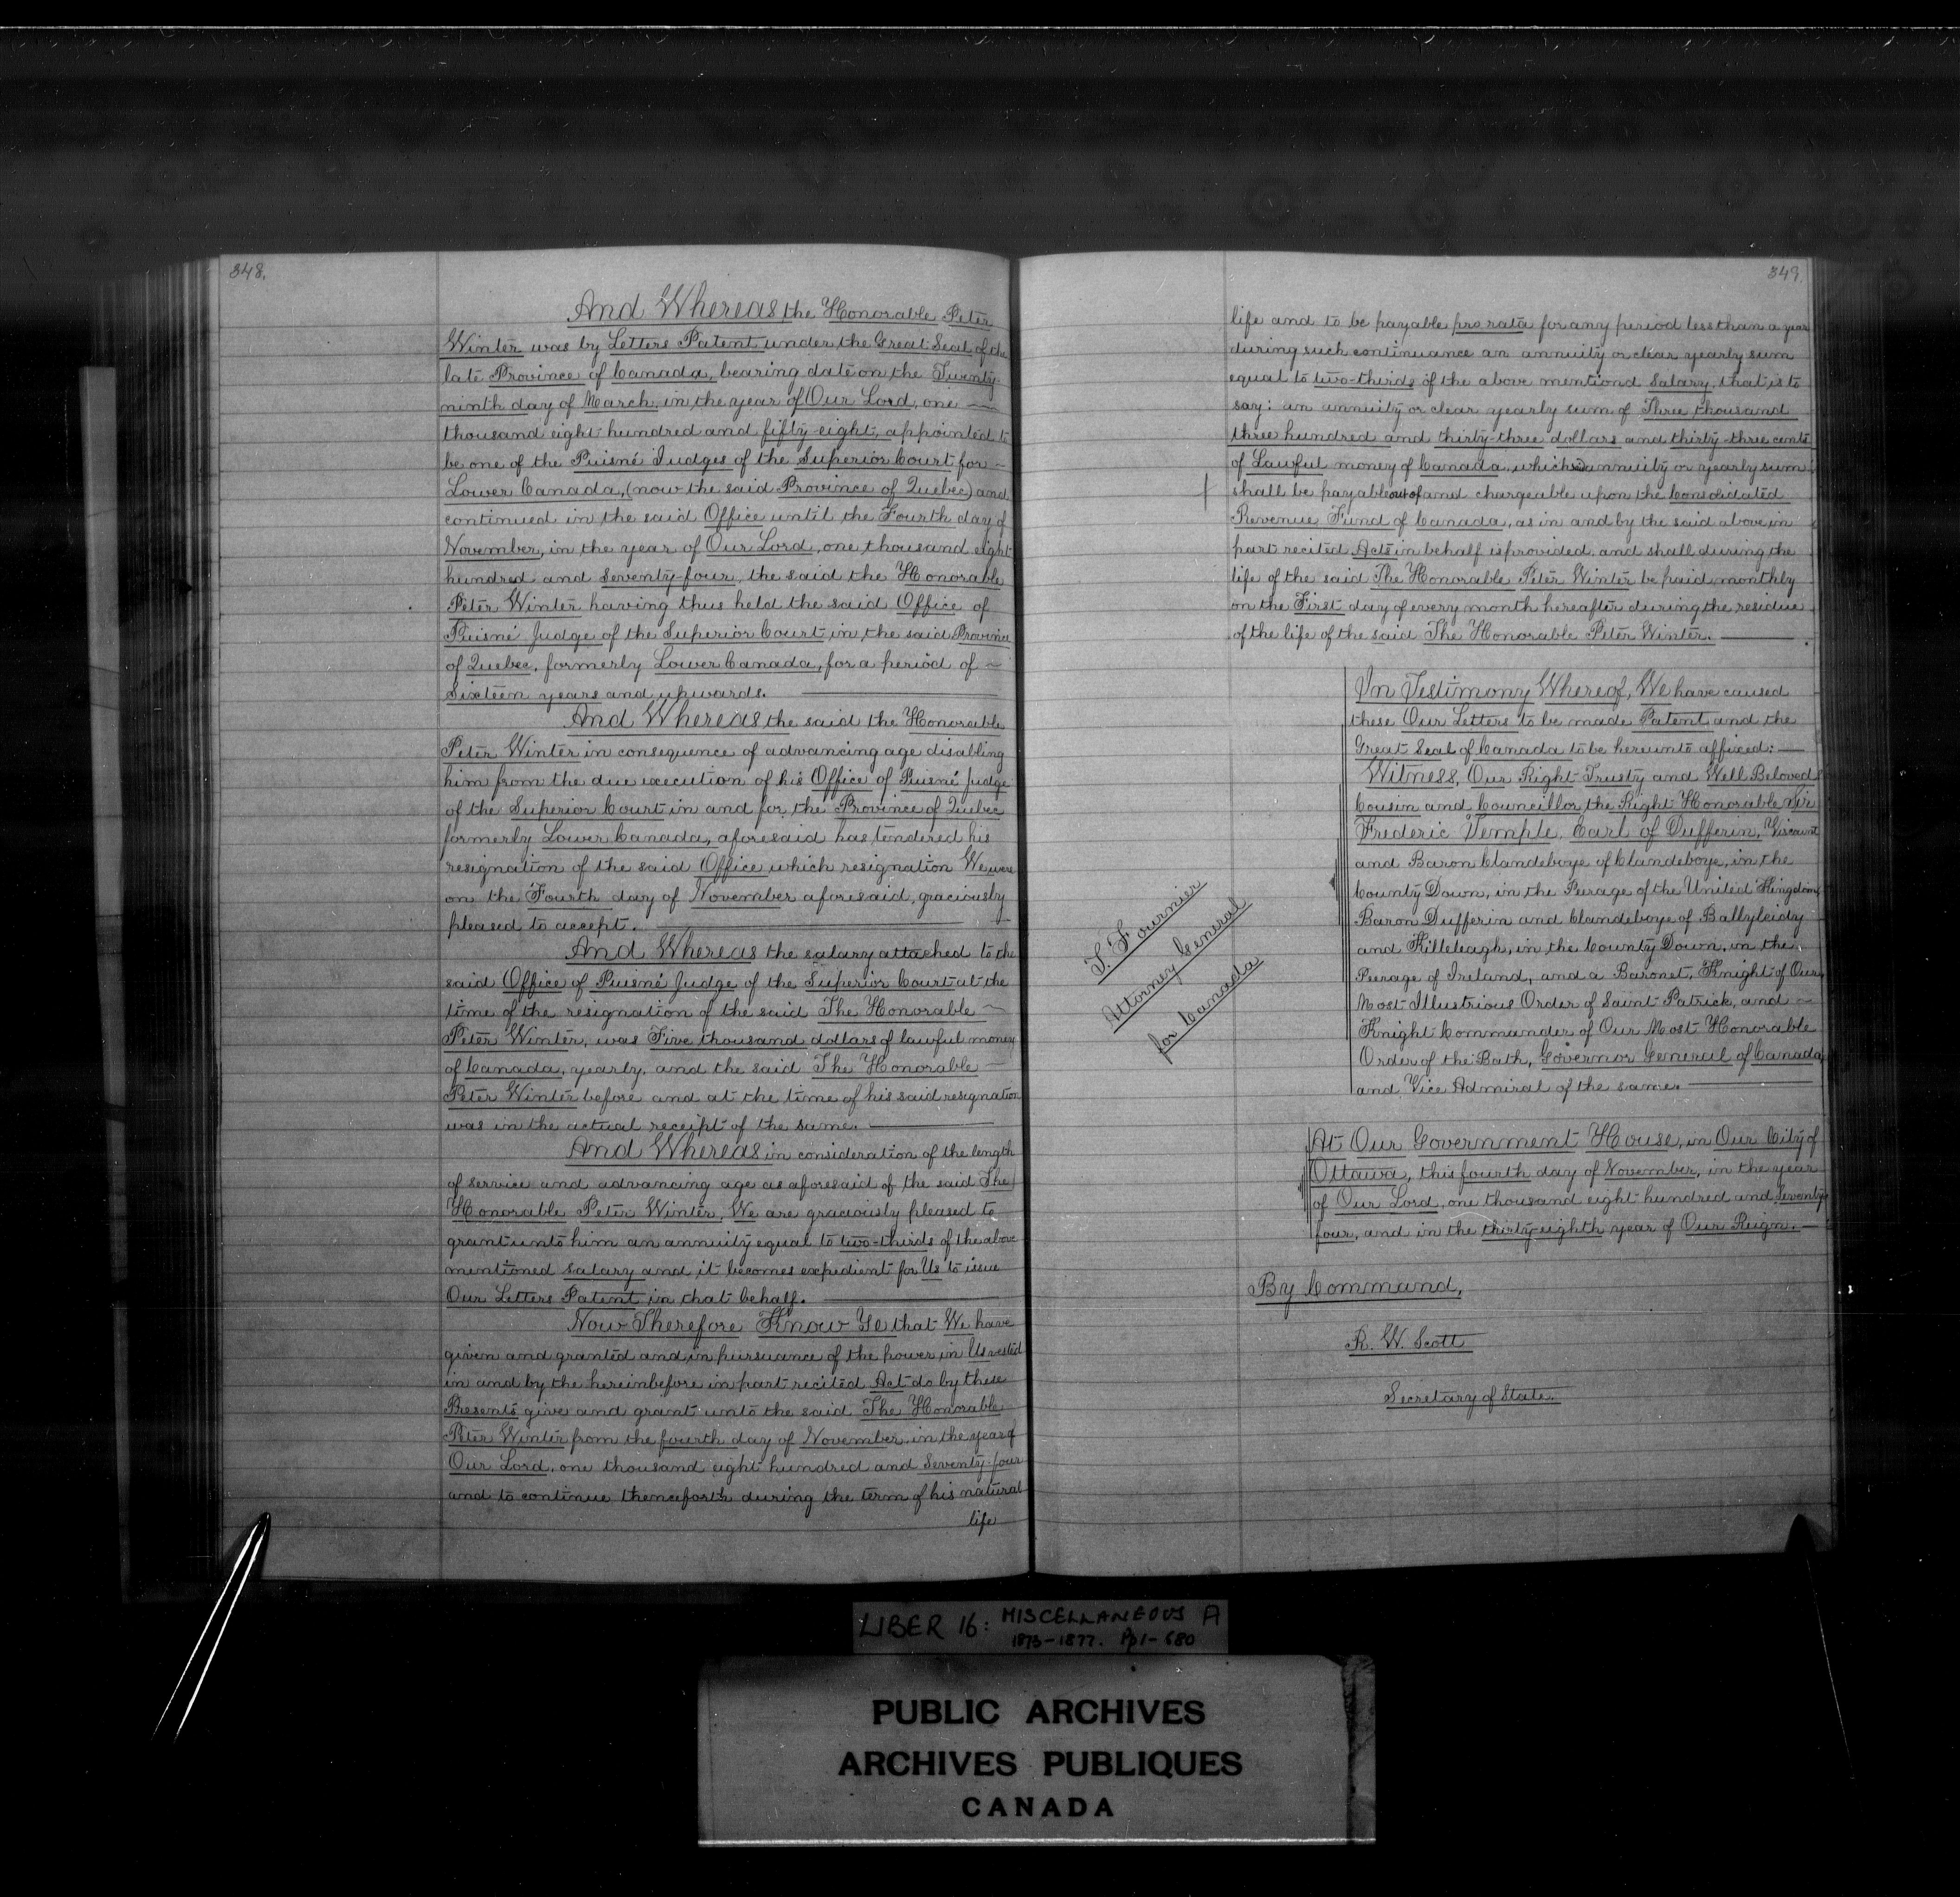 348.
And Whereas the Honorable Peter
Winter was by Letters Patent under the Great Seal of the
late Province of Canada, bearing date on the Twenty
ninth day of March in the year of Our Lord, one —
thousand eight hundred and fifty-eight, appointed to
be one of the Puisné Judges of the Superior Court for —
Lower Canada, (now the said Province of Quebec) and
continued in the said Office until the Fourth day of
November, in the year of Our Lord, one thousand eight
hundred and seventy-four, the said the Honorable
Peter Winter having thus held the said Office of
Puisné Judge of the Superior Court in the said Province
of Quebec, formerly Lower Canada, for a period of —
Sixteen years and upwards.
And Whereas the said the Honorable
Peter Winter in consequence of advancing age disabling
him from the due execution of his Office of Puisné Judge
of the Superior Court in and for the Province of Quebec
formerly Lower Canada, aforesaid has tendered his
resignation of the said Office which resignation We were
on the Fourth day of November aforesaid, graciously
pleased to accept.
And Whereas the salary attached to the
said Office of Puisné Judge of the Superior Court at the
time of the resignation of the said The Honorable —
Peter Winter, was Five thousand dollars of lawful money
of Canada, yearly, and the said The Honorable —
Peter Winter before and at the time of his said resignation
was in the actual receipt of the same.
And Whereas in consideration of the length
of service and advancing age as aforesaid of the said The
Honorable Peter Winter, We are graciously pleased to
grant unto him an annuity equal to two-thirds of the above
mentioned salary and it becomes expedient for Us to issue
Our Letters Patent in that behalf.
Now Therefore Know Ye that We have
given and granted and in pursuance of the power in Us vested
in and by the hereinbefore in part recited Act do by these
Presents give and grant unto the said The Honorable
Peter Winter from the fourth day of November in the year of
Our Lord, one thousand eight hundred and seventy-four
and to continue thenceforth during the term of his natural
life
349.
life and to be payable pro rata for any period less than a year
during such continuance an annuity or clear yearly sum
equal to two-thirds of the above mentiond Salary, that is to
say: an annuity or clear yearly sum of Three thousand
three hundred and thirty-three dollars and thirty-three cents
of Lawful money of Canada, which annuity or yearly sum
shall be payable out of and chargeable upon the Consolidated
Revenue Fund of Canada, as in and by the said above in
part recited Acts in behalf is provided, and shall during the
life of the said The Honorable Peter Winter be paid monthly
on the First day of every month hereafter during the residue
of the life of the said The Honorable Peter Winter.
In Testimony Whereof, We have caused
these Our Letters to be made Patent and the
Great Seal of Canada to be hereunto affixed: —
Witness, Our Right Trusty and Well Beloved
Cousin and Councillor, the Right Honorable Sir
Frederic Temple, Earl of Dufferin, Viscount
and Baron Clandeboye of Clandeboye, in the
County Down, in the Peerage of the United Kingdom,
Baron Dufferin and Clandeboye of Ballyleidy
and Killeleagh, in the County Down, in the
Peerage of Ireland, and a Baronet, Knight of Our
Most Illustrious Order of Saint Patrick, and —
Knight Commander of Our Most Honorable
Order of the Bath, Governor General of Canada,
and Vice Admiral of the same.
T. Fournier
Attorney General
for Canada
At Our Government House, in Our City of
Ottawa, this fourth day of November, in the year
of Our Lord, one thousand eight hundred and seventy-
four, and in the thirty-eighth year of Our Reign. —
By Command,
R. W. Scott
Secretary of State.
LIBER 16: MISCELLANEOUS A
1873-1877. Pp 1-680
PUBLIC ARCHIVES
ARCHIVES PUBLIQUES
CANADA